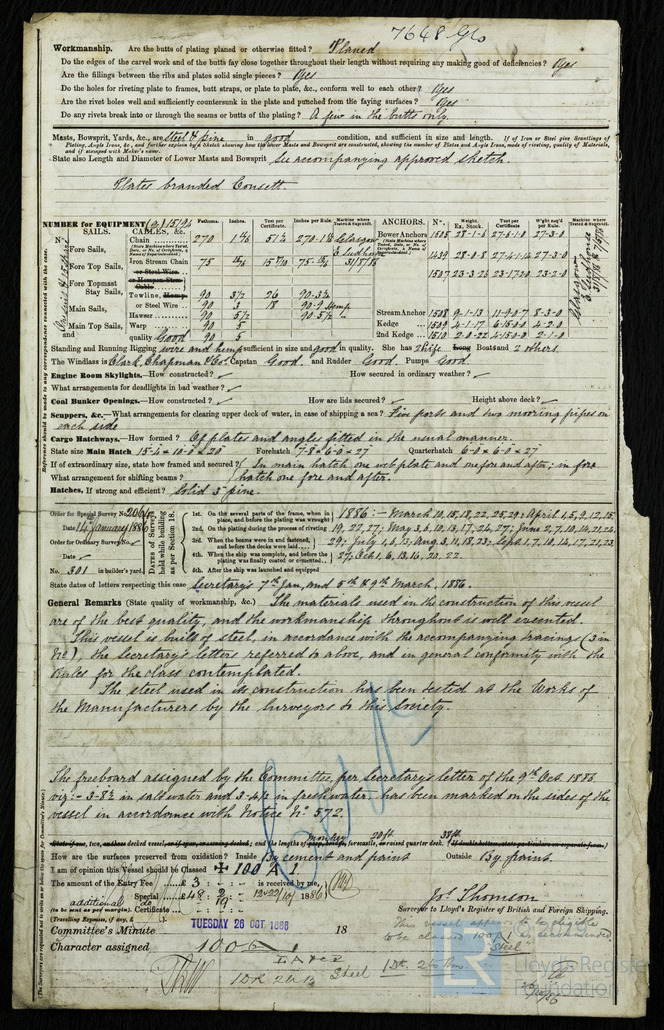 7648 Gls
Workmanship. Are the butts of plating planed or otherwise fitted? Planed
Do the edges of the carvel work and of the butts fay close together throughout their length without requiring any making good of deficiencies? Yes
Are the fillings between the ribs and plates solid single pieces? Yes
Do the holes for riveting plate to frames, butt straps, or plate to plate, &c., conform well to each other? Yes
Are the rivet holes well and sufficiently countersunk in the plate and punched from the faying surfaces? Yes
Do any rivets break into or through the seams or butts of the plating? A few in the butts only.
Masts, Bowsprit, Yards, &c., are steel & pine in good condition, and sufficient in size and length. If of Iron or Steel give Scantlings of
Plating, Angle Irons, &c., and further explain by a Sketch showing how the lower Masts are constructed, showing the number of Plates and Angle Irons, mode of riveting, quality of Materials,
and if stamped with Maker's name.
State also Length and Diameter of Lower Masts and Bowsprit See accompanying approved sketch.
Plates branded Consett.
NUMBER for EQUIPMENT
SAILS. CABLES, &c. Fathoms. Inches. Test per Certificate. Inches per Rule. Machine where Tested & Suprntd. ANCHORS. Nº. Weight Ex. Stock. Test per Certificate W'ght req'd per Rule. Machine where Tested & Suprntd.
Fore Sails, Chain 270 Glasgow Bower Anchors 1508 28-1-6 27-3-0
Iron Stream Chain 75 1439 28-0-8 27-3-0
Fore Top Sails, or Steel Wire 1507 23-3-26 23-2-0
Fore Topmast Stay Sails, or Hempen Strm Cable
Towline, Hemp 90 3½ 26 90-3½
Main Sails, or Steel Wire 90 3 18 Stream Anchor 1508 9-1-13 11-9-0-7 8-3-0
Hawser 90 5½ 90-5½ Kedge 1509 4-1-17 6-15-0-0 4-2-0
Main Top Sails, Warp 90 5 2nd Kedge 1510 2-0-22 4-15-0-0 2-1-0
and quality Good 90 5
Standing and Running Rigging wire and hemp sufficient in size and good in quality. She has 2 life Long Boats and 2 others
The Windlass is Clark, Chapman & Co's. Capstan Good. and Rudder Good. Pumps Good
Engine Room Skylights.—How constructed? ✓ How secured in ordinary weather? ✓
What arrangements for deadlights in bad weather? ✓
Coal Bunker Openings.—How constructed? ✓ How are lids secured? ✓ Height above deck? ✓
Scuppers, &c.—What arrangements for clearing upper deck of water, in case of shipping a sea? Five ports and two mooring pipes on
each side
Cargo Hatchways.—How formed? Of plates and angles fitted in the usual manner.
State size Main Hatch 15-4 x 10-0 x 20 Forehatch 7-8 x 6-0 x 27 Quarterhatch 6-0 x 6-0 x 27
If of extraordinary size, state how framed and secured? In main hatch one web plate and one fore and after; in fore
What arrangement for shifting beams? hatch one fore and after.
Hatches, If strong and efficient? Solid 3" pine.
Order for Special Survey No.
Date 14th January 1886
Order for Ordinary Survey No. ✓
Date ✓
No. 301 in builder's yard.
DATES of Surveys held while building as per Section 18.
1st. On the several parts of the frame, when in place, and before the plating was wrought
2nd. On the plating during the process of riveting
3rd. When the beams were in and fastened, and before the decks were laid....
4th. When the ship was complete, and before the plating was finally coated or cemented..
5th. After the ship was launched and equipped
1886:- March 10, 15, 18, 22, 25, 29; April 1, 5, 9, 12, 15,
19, 22, 27; May 3, 6, 10, 13, 17, 24, 27; June 2, 7, 10, 14, 21, 24,
29; July 1, 5, 13; Aug. 3, 11, 18, 23; Sept. 1, 7, 10, 14, 17, 21, 23
27; Oct. 1, 6, 13, 16, 20, 22.
State dates of letters respecting this case Secretary's 7th Jan, and 5th & 9th March, 1886.
General Remarks (State quality of workmanship, &c.) The materials used in the construction of this vessel
are of the best quality, and the workmanship throughout is well executed.
This vessel is built of steel, in accordance with the accompanying tracings (3 in
No.), the Secretary's letters referred to above, and in general conformity with the
Rules for the class contemplated.
The steel used in its construction has been tested at the Works of
the Manufacturers by the Surveyors to this Society.
The freeboard assigned by the Committee, per Secretary's letter of the 9th Oct. 1886
viz:- 3-8½ in salt water and 3-4½ in fresh water has been marked on the sides of the
vessel in accordance with Notice No. 572.
State if one, two, or three decked vessel, or if spar, or awning decked; and the lengths of poop, bridge, forecastle, or raised quarter deck. 38ft
monkey 20ft
How are the surfaces preserved from oxidation? Inside By cement and paint Outside By paint.
I am of opinion this Vessel should be Classed ✠ 100 A 1
The amount of the Entry Fee £ 3 : - : - is received by me,
Special
additional
(to be sent as per margin). Certificate
(Travelling Expenses, if any, £ )
Jos. Thomson
Surveyor to Lloyd's Register of British and Foreign Shipping.
Committee's Minute TUESDAY 26 OCT 1886 18
This vessel appears to be eligible
to be classed 100A1 as recommended
"Steel"
Character assigned 100A1
Steel 1 Dk.
Lloyd's Register
Foundation